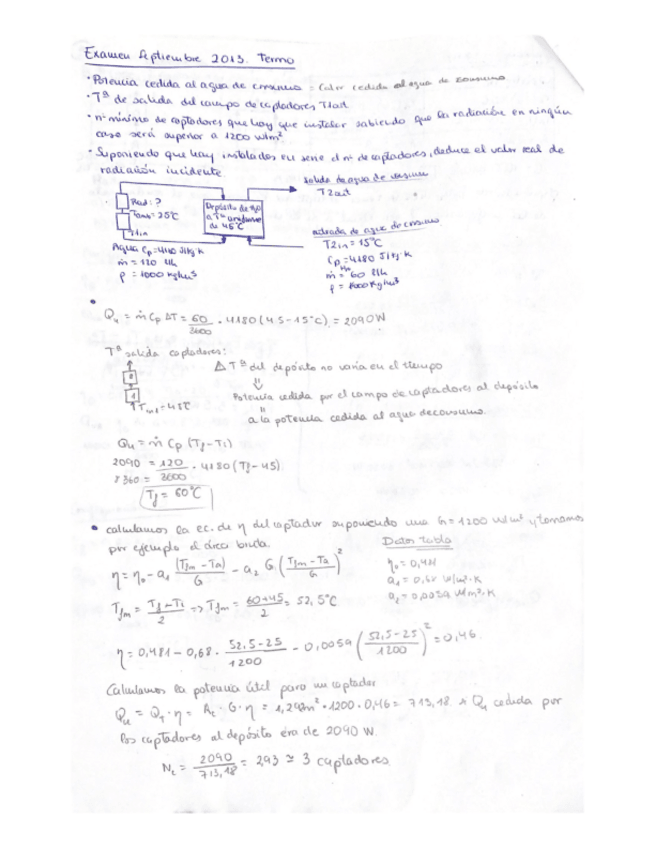 Examen Septiembre 2013. Termo
· Potencia cedida al agua de consumo = Calor cedido al agua de consumo
· Tª de salida del campo de captadores T1out
· nº mínimo de captadores que hay que instalar sabiendo que la radiación en ningún
caso será superior a 1200 w/m²
· Suponiendo que hay instalados en serie el nº de captadores, deduce el valor real de
radiación incidente.
salida de agua de consumo
T2out
Rad: ?
Tamb = 25°C
T1in
Depósito de H2O
a Tª uniforme
de 45°C
entrada de agua de consumo
T2in = 15°C
Cp = 4180 J/kg·K
ṁ = 60 l/h
ρ = 1000 kg/m³
Agua Cp = 4180 J/kg·K
ṁ = 120 l/h
ρ = 1000 kg/m³
• Qu = ṁ Cp ΔT = 60/3600 · 4180 (45-15°C) = 2090 W
Tª salida captadores:
2
1
Tin1 = 45°C
Δ Tª del depósito no varía en el tiempo
⇓
Potencia cedida por el campo de captadores al depósito
=
a la potencia cedida al agua de consumo.
Qu = ṁ Cp (Tf - Ti)
2090 = 120/3600 · 4180 (Tf - 45)
Tf = 60°C
• calculamos la ec. de η del captador suponiendo una G = 1200 w/m² y tomamos
por ejemplo el área bruta.
Datos tabla
η = η₀ - a₁ (Tfm - Ta)/G - a₂ G ((Tfm - Ta)/G)²
a₂ = 0,0059 w/m²·K
Tfm = Tf - Ti/2 => Tfm = 60+45/2 = 52,5°C
η = 0,481 - 0,68 · 52,5-25/1200 - 0,0059 (52,5-25/1200)² = 0,46.
Calculamos la potencia útil para un captador
· 1200 · 0,46 = 713,18 * Qu cedida por
los captadores al depósito era de 2090 W.
Nc = 2090/713,18 = 2,93 ≃ 3 captadores